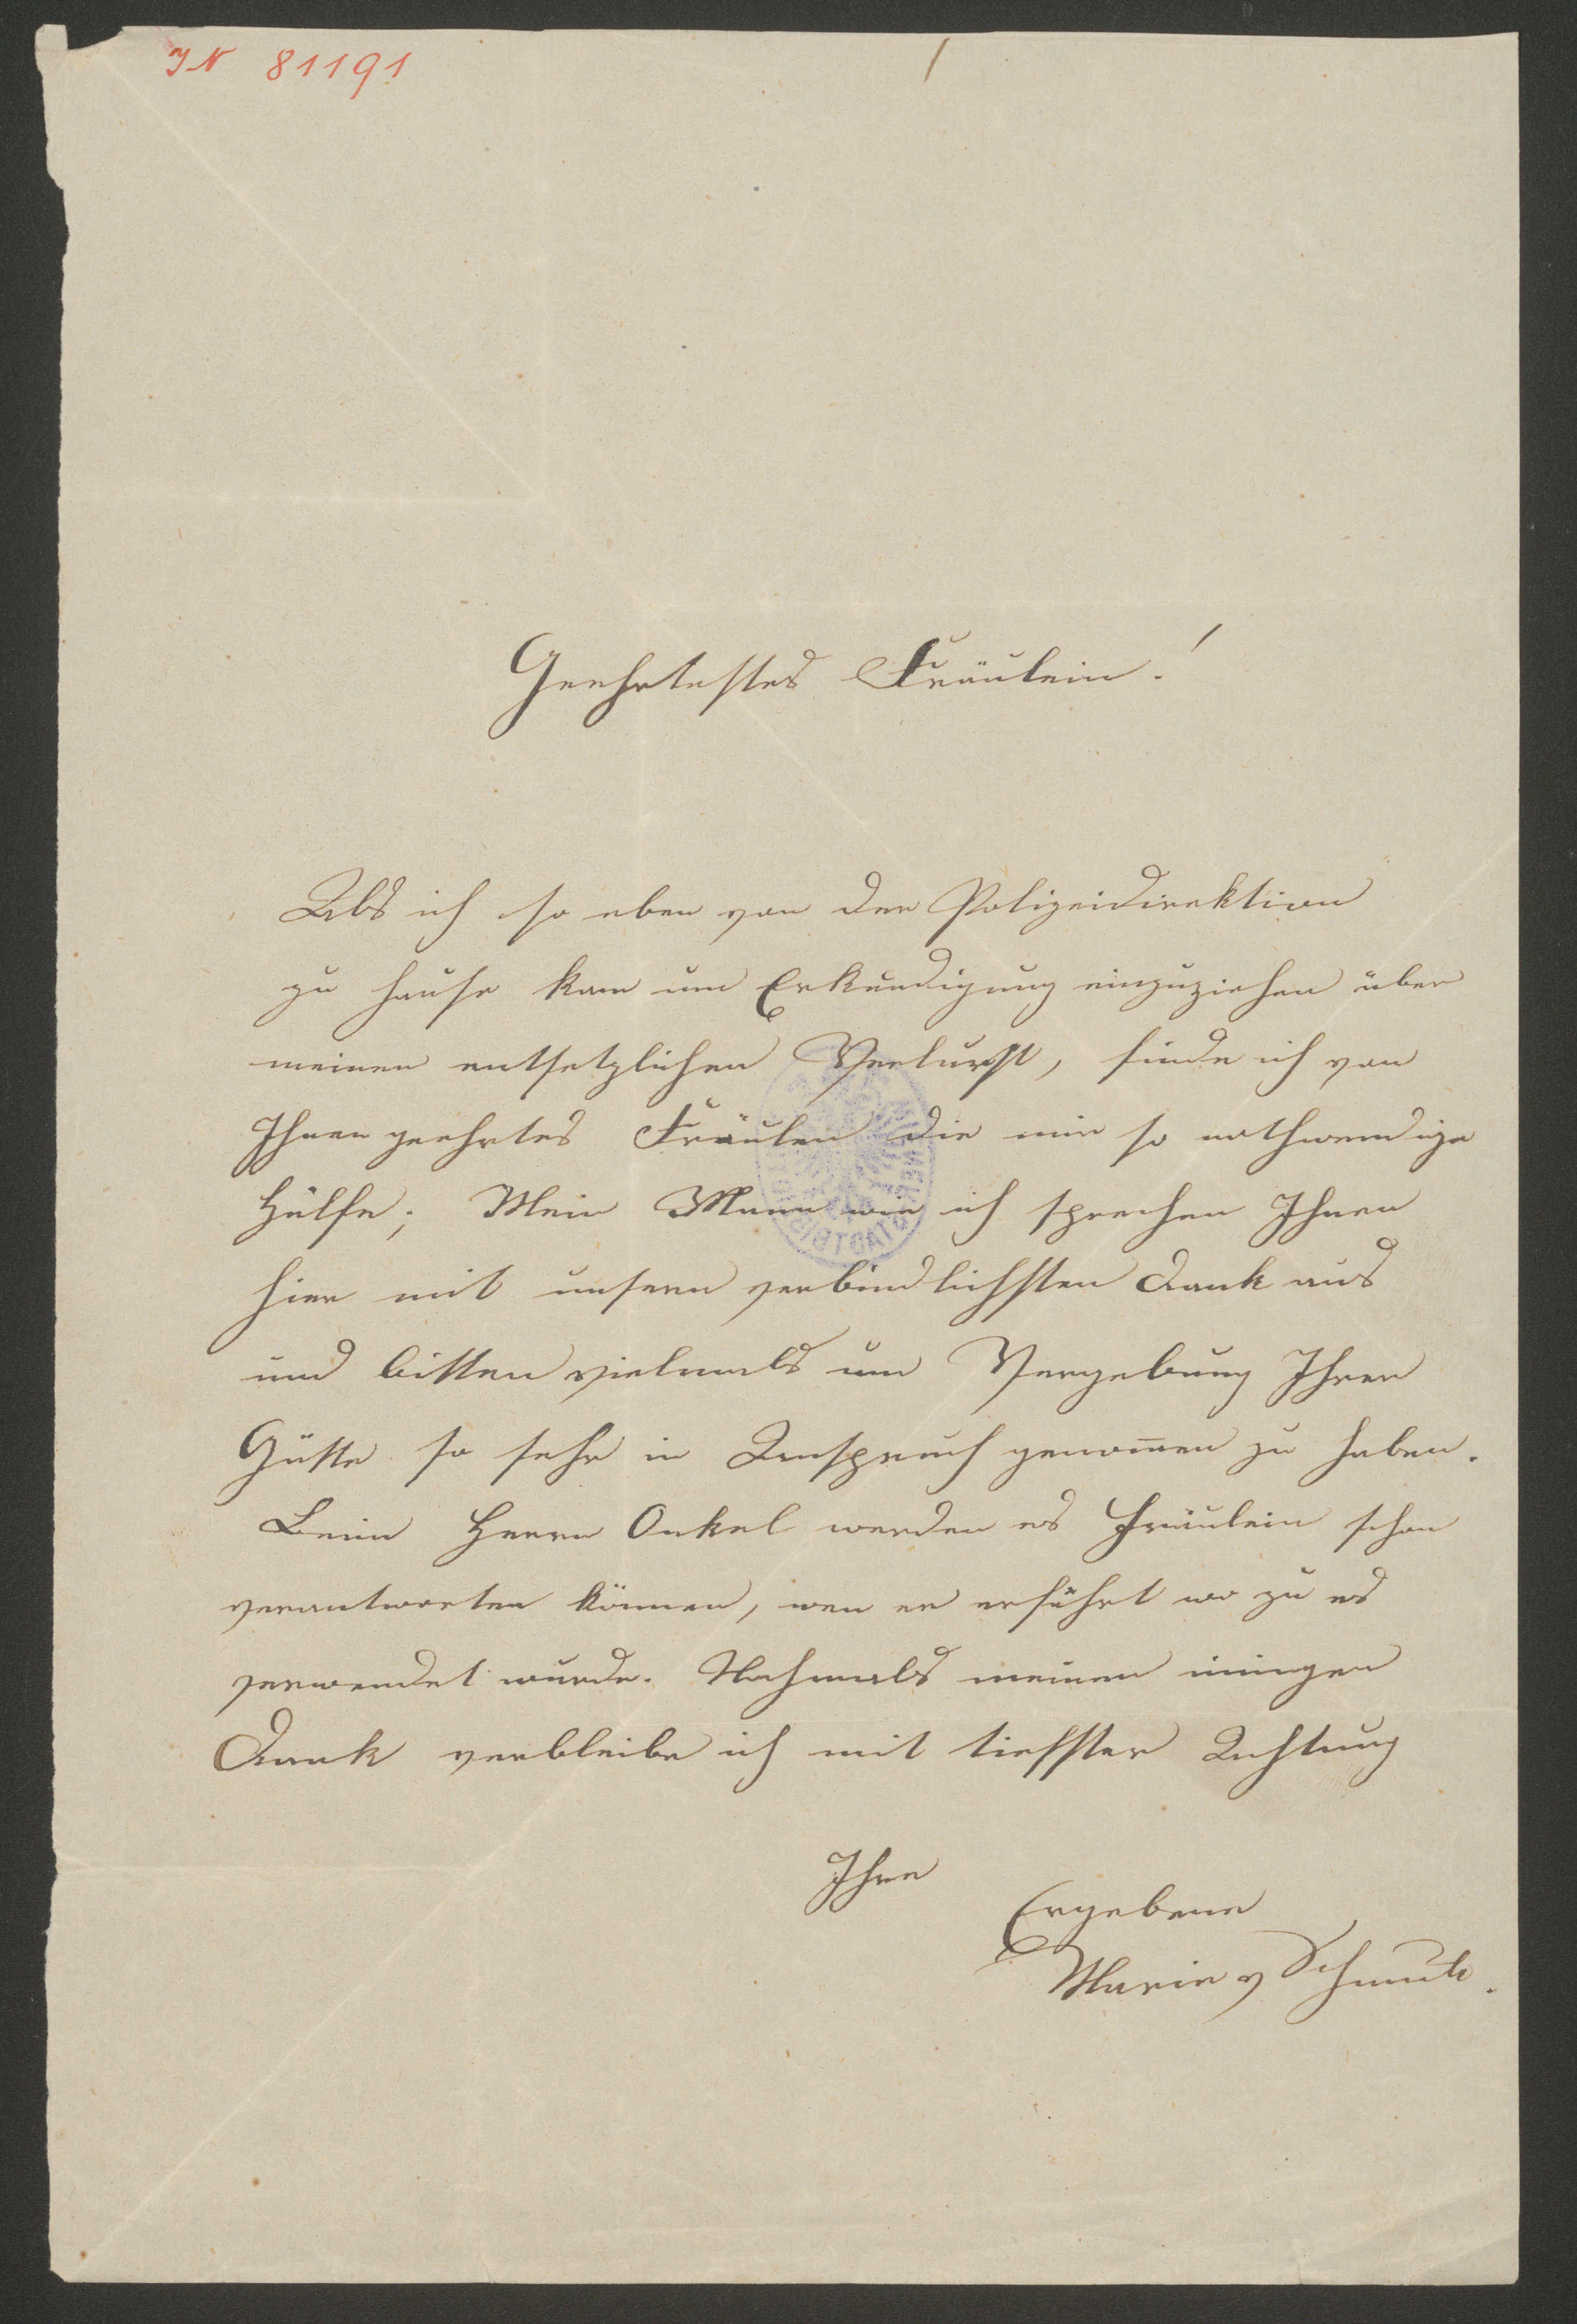 IN 81191
Geehrtestes Fräulein!
Als ich so eben von der Polizeidirektion
zu hause kam um Erkundigung einzuziehen über
meinen entsetzlichen Verlurst, finde ich von
Ihnen geehrtes Fräulen die mir so nothwendige
Hülfe; Mein Mann wie ich sprechen Ihnen
hier mit unsern verbindlichsten Dank aus
und bitten vielmals um Vergebung Ihrer
Gütte so sehr in Anspruch genom̄en zu haben.
Beim Herrn Onkel werden es Fräulein schon
verantworten können, wen er erfährt wo zu es
verwendet wurde. Nochmals meinen innigen
Dank verbleibe ich mit tiefster Achtung
Ihre
Ergebene
Marie v